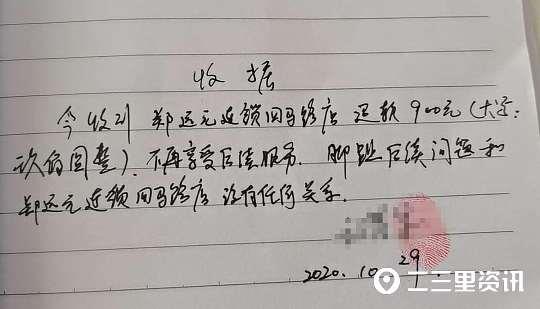 收据
今收到 郑远元连锁回马路店 退款 900元(大写:
玖佰圆整). 不再享受后续服务. 脚趾后续问题和
郑远元连锁回马路店 没有任何关系.
2020.10.29
二三里资讯